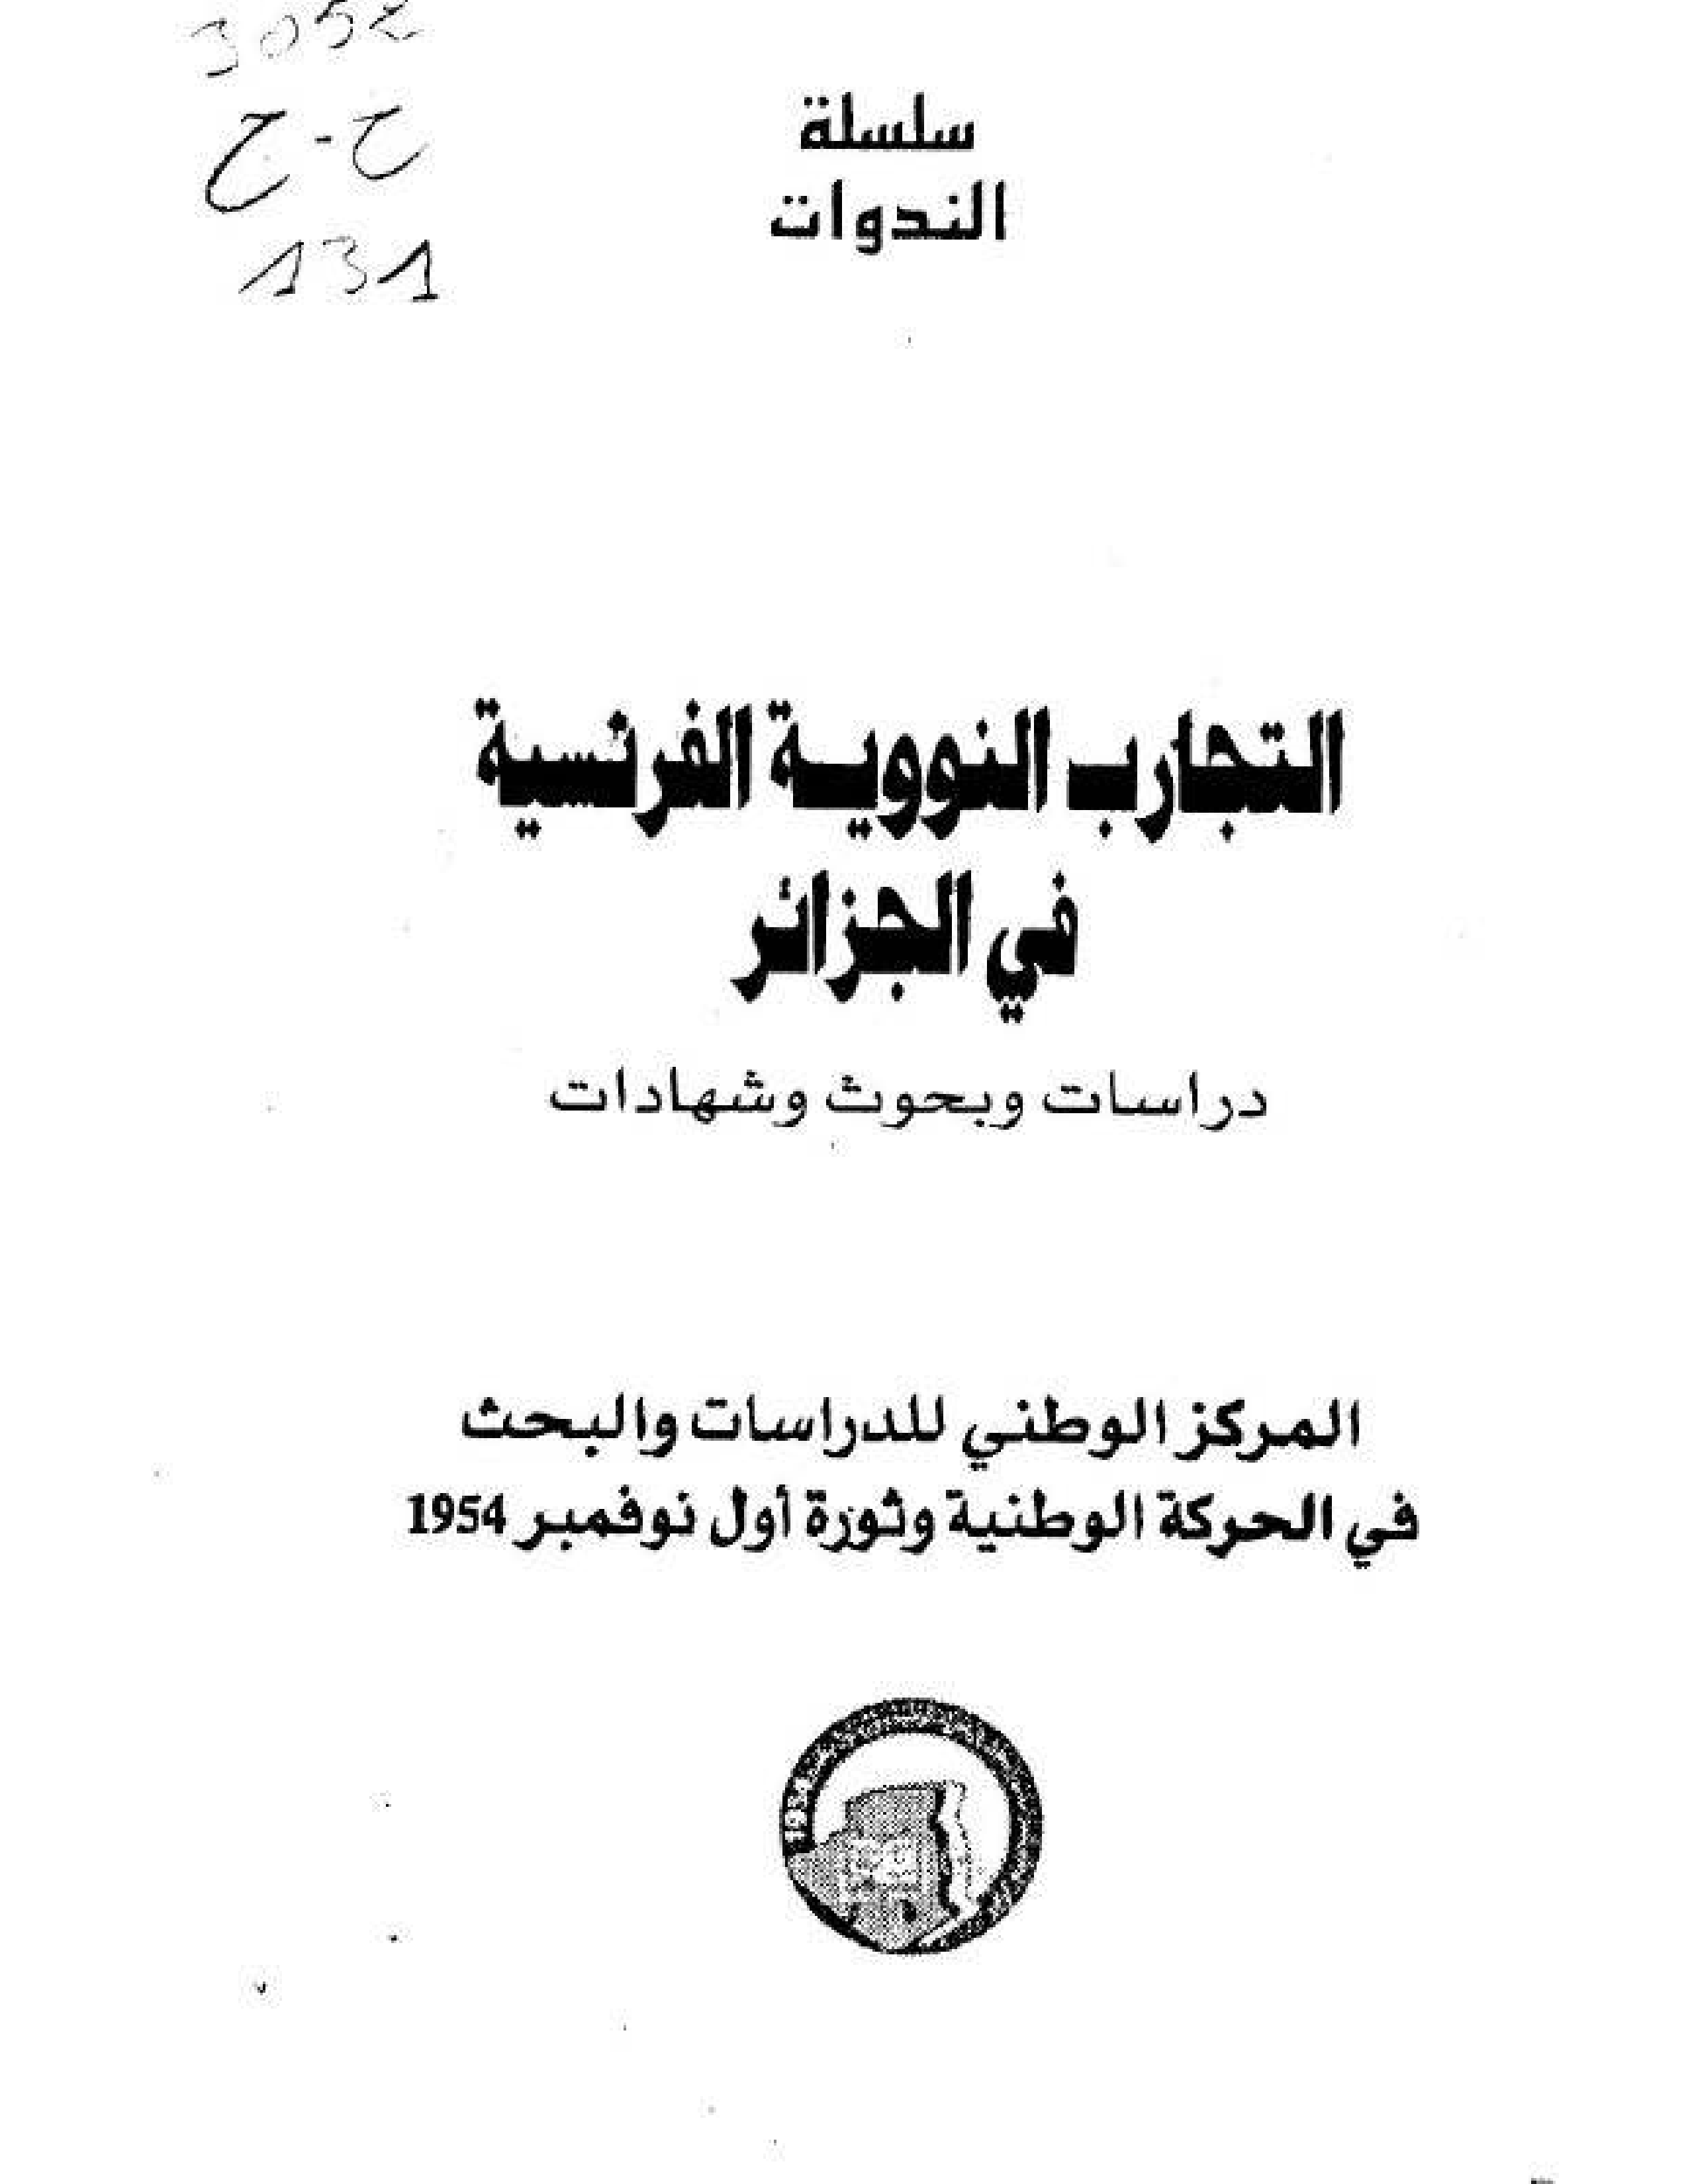 3052
ح - ح
131
سلسلة
الندوات
التجارب النووية الفرنسية
في الجزائر
دراسات وبحوث وشهادات
المركز الوطني للدراسات والبحث
في الحركة الوطنية وثورة أول نوفمبر 1954
1954